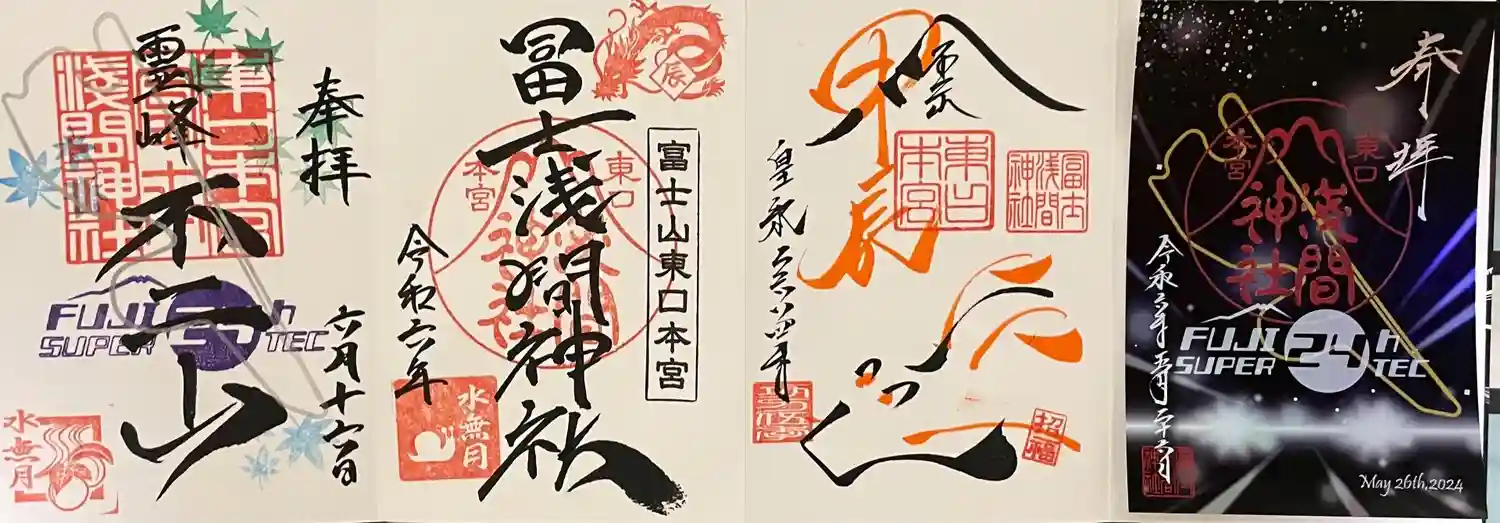 奉拝
霊峰
不二山
六月十六日
東口本宮
冨士
浅間神社
FUJI 24h
SUPER TEC
水無月
辰
冨士浅間神社
富士山東口本宮
東口
本宮
浅間
神社
令和六年
水無月
甲辰
東口
本宮
冨士
浅間
神社
招福
奉拝
東口
本宮
浅間
神社
FUJI 24h
SUPER TEC
令和六年五月二十六日
May 26th,2024